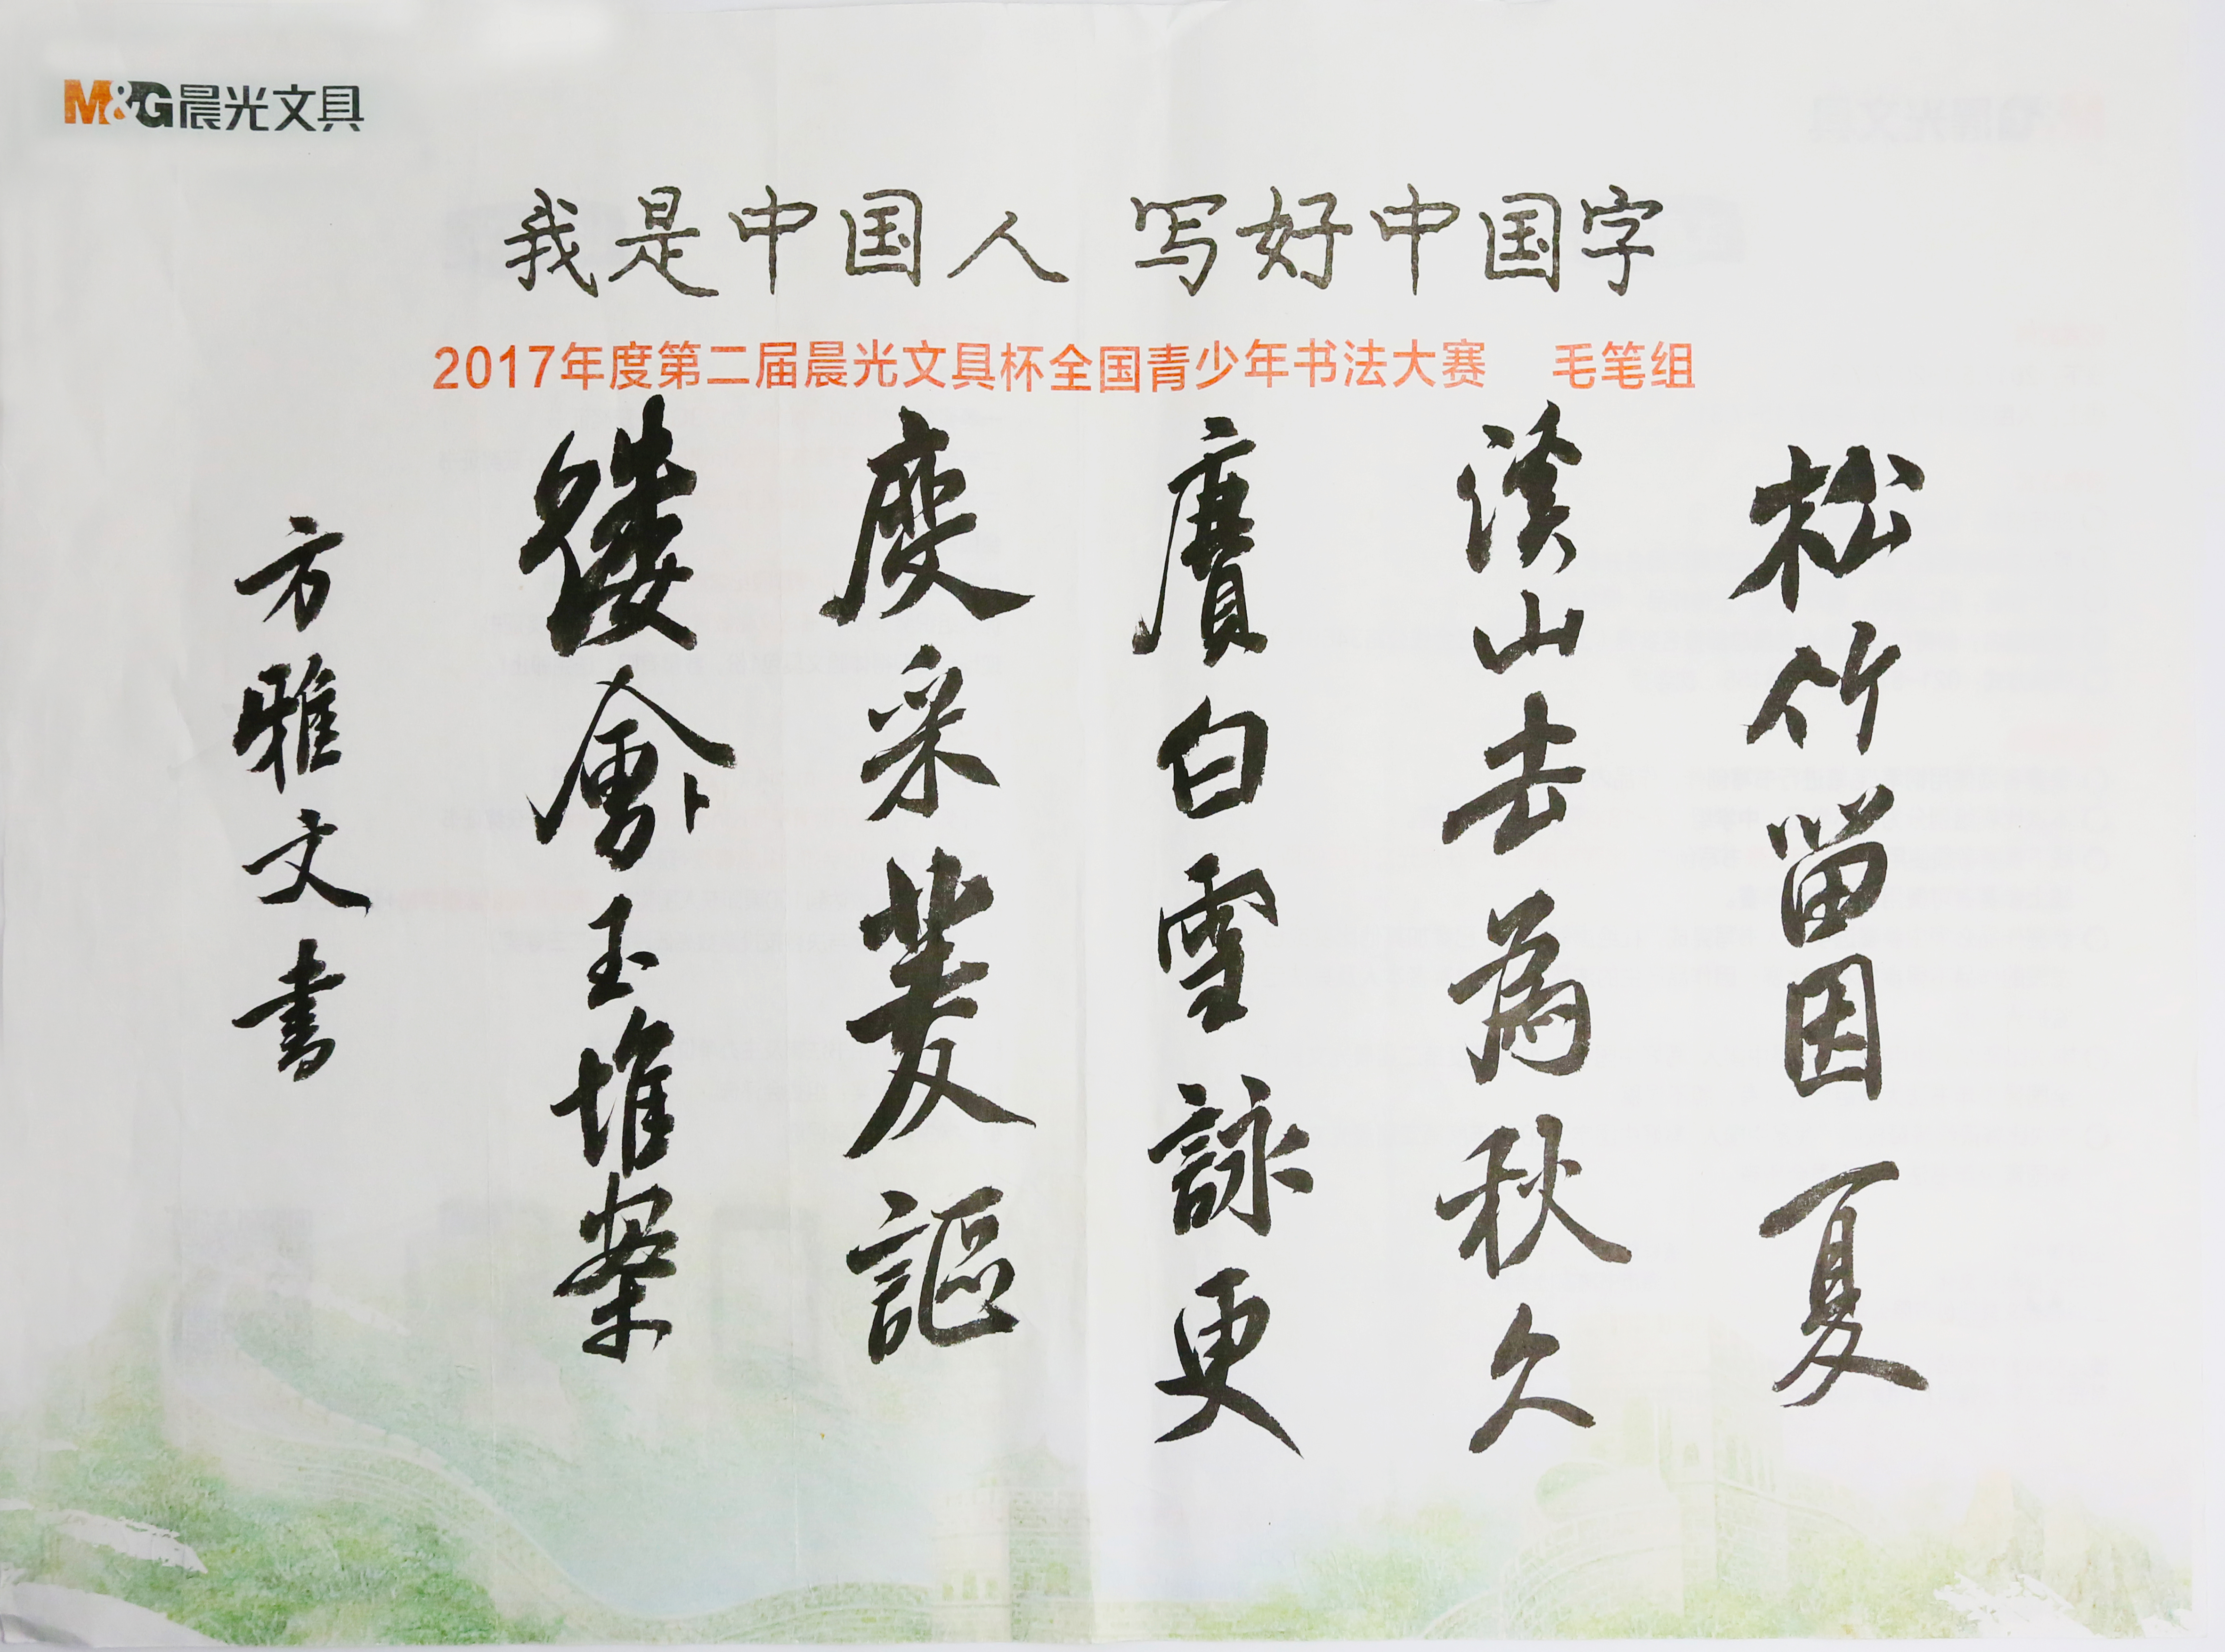 M&G晨光文具
我是中国人 写好中国字
2017年度第二届晨光文具杯全国青少年书法大赛 毛笔组
松竹留因夏
溪山去為秋久
賡白雪詠更
度采菱謳
縷會玉堆案
方雅文書